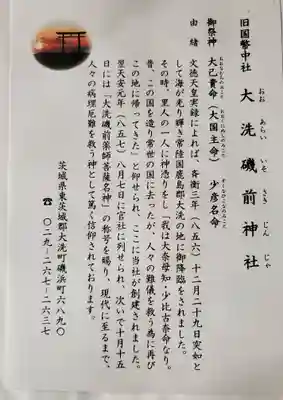 旧国幣中社
大洗磯前神社
おお あらい いそ さき じん じゃ
御祭神 大己貴命（大国主命） 少彦名命
由緒
文徳天皇実録によれば、斉衡三年（八五六）十二月二十九日突如と
して海が光り輝き常陸国鹿島郡大洗の地に御降臨をされました。
その時、里人の一人に神憑りをし「我は大奈母知・少比古奈命なり。
昔、この国を造り常世の国に去ったが、人々の難儀を救う為に再び
この地に帰ってきた」と仰せられ、ここに当社が創建されました。
翌天安元年（八五七）八月七日に官社に列せられ、次いで十月十五
日には「大洗磯前薬師菩薩名神」の称号を賜り、現代に至るまで、
人々の病理厄難を救う神として篤く信仰されております。
茨城県東茨城郡大洗町磯浜町六八九〇
☎ 〇二九-二六七-二六三七